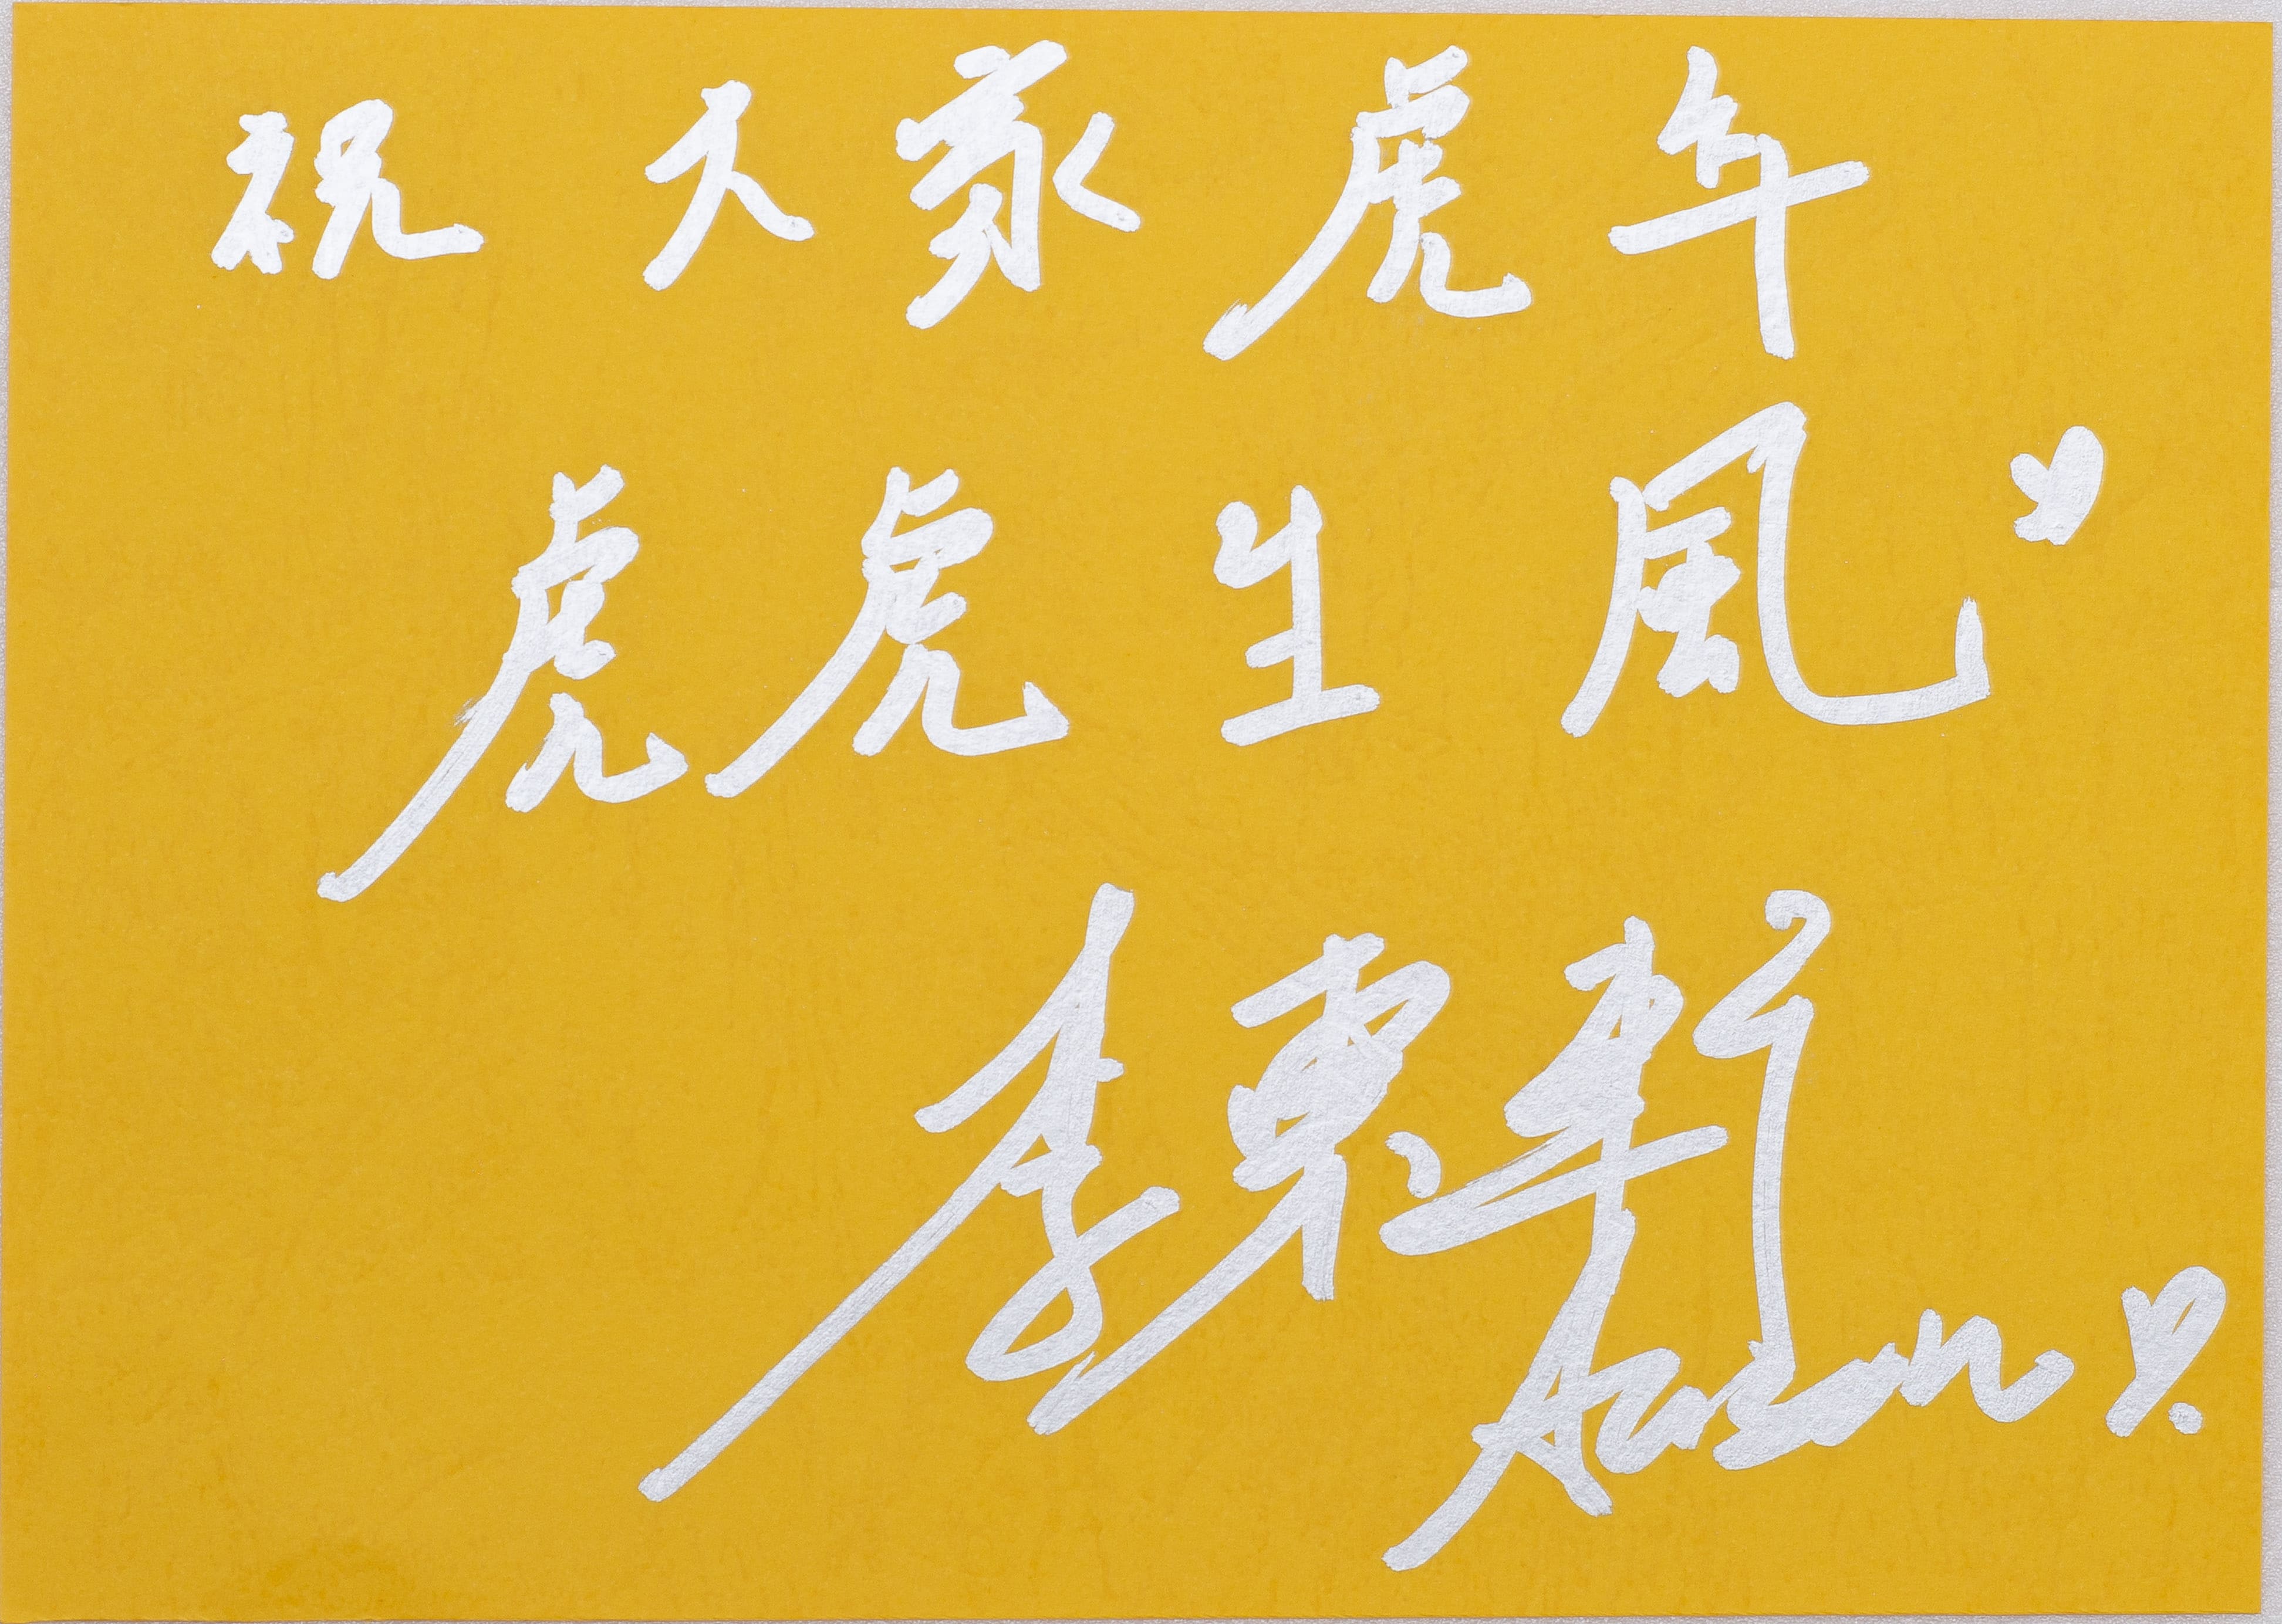 祝大家虎年
虎虎生風
李東軒
Aaron